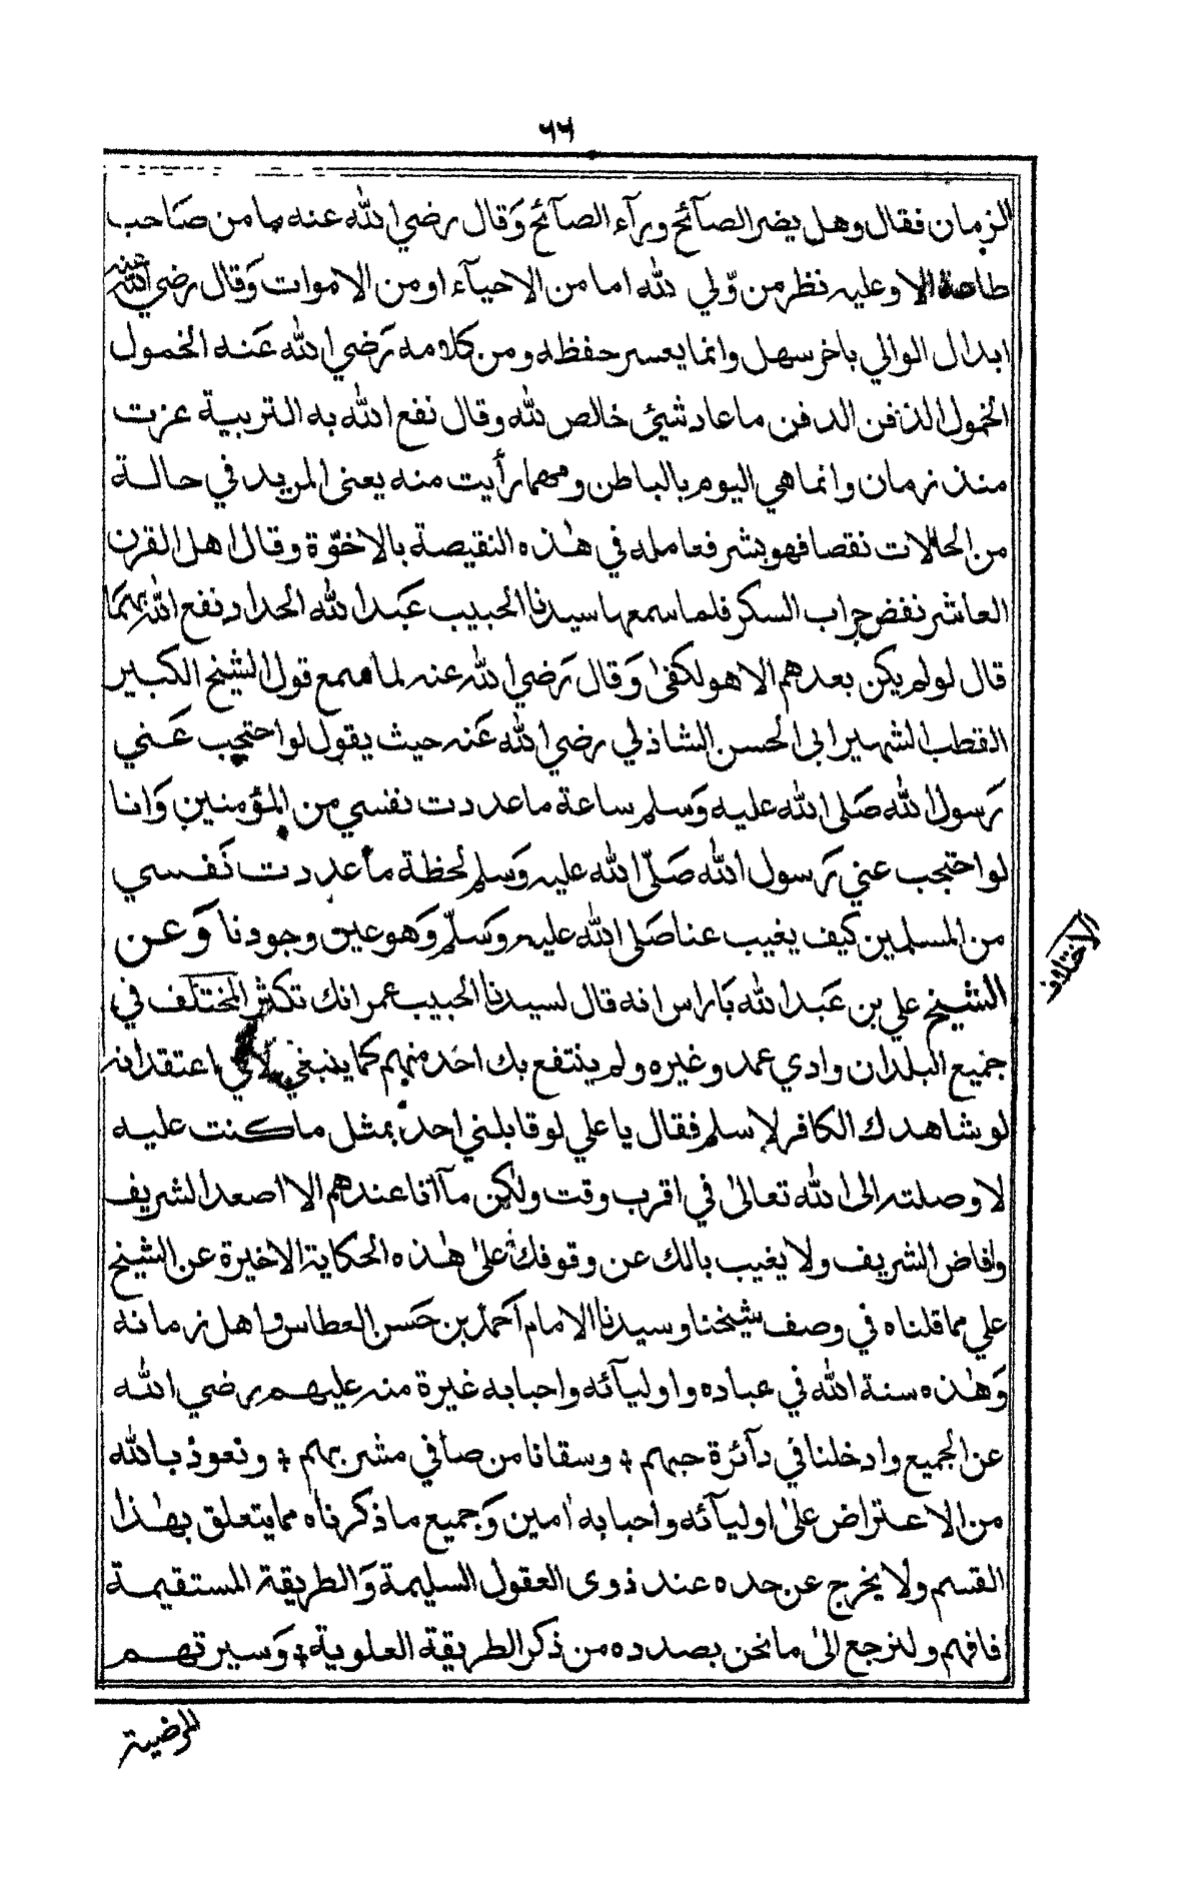 ٦٦
الزمان فقال وهل يضر الصآئح ورآء الصآئح وَقال رضي الله عنه ما من صَاحب
طاعة الا وعليه نظر من وّلي لله اما من الاحيآء او من الاموات وَقال رضي الله عنه
ابدال الوالي باخر سهل وانما يعسر حفظه ومن كلامه رَضي الله عَنه الخمول
الخمول الدفن الدفن ما عاد شيئ خالص لله وقال نفع الله به التربية عزت
منذ زمان وانما هي اليوم بالباطن ومهما رأيت منه يعنى المريد في حالة
من الحالات نقصا فهو بشر فعامله في هٰذه النقيصة بالاخوّة وقال اهل القرن
العاشر نفض جراب السكر فلما سمعها سيدنا الحبيب عَبد الله الحداد نفع الله بهمَا
قال لو لم يكن بعدهم الا هو لكفىٰ وَقال رَضي الله عنه لما سمع قول الشيخ الكبير
القطب الشهير ابى الحسن الشاذلي رضي الله عَنه حيث يقول لو احتجب عَني
رَسول الله صَلى الله عليه وَسلم ساعة ما عددت نفسي من المؤمنين وَانا
لو احتجب عني رَسول الله صَلّى الله عليه وَسلم لحظة ما عددت نَفسي
من المسلمين كيف يغيب عنا صَلى الله عليه وَسلّم وَهو عين وجودنا وَعن
الشيخ علي بن عَبد الله بَاراس انه قال لسيدنا الحبيب عمر انك تكثر المختلف في
الاختلاف
جميع البلدان وادي عمد وغيره ولم ينتفع بك احَد منهم كما ينبغي لاني اعتقد انه
لو شاهدك الكافر لاسلم فقال يا علي لو قابلني احد بمثل ما كنت عليه
لاوصلته الى الله تعالىٰ في اقرب وقت ولٰكن مآ انا عندهم الا اصعد الشريف
وافاض الشريف ولا يغيب بالك عن وقوفك علىٰ هٰذه الحكاية الاخيرة عن الشيخ
علي مما قلناه في وصف شيخنا وسيدنا الامام اَحمد بن حَسن العطاس واهل زمانه
وَهٰذه سنة الله في عباده واوليآئه واحبابه غيرة منه عليهم رضي الله
عن الجميع وادخلنا في دآئرة حبهم ÷ وسقانا من صافي مشربهم ÷ ونعوذ بالله
من الاعتراض علىٰ اوليآئه واحبابه اٰمين وَجميع ما ذكرناه مما يتعلق بهٰذا
القسم ولا يخرج عن حده عند ذوى العقول السليمة وَالطريقة المستقيمة
فافهم ولنرجع الىٰ ما نحن بصدده من ذكر الطريقة العلوية ÷ وَسيرتهم
المرضية